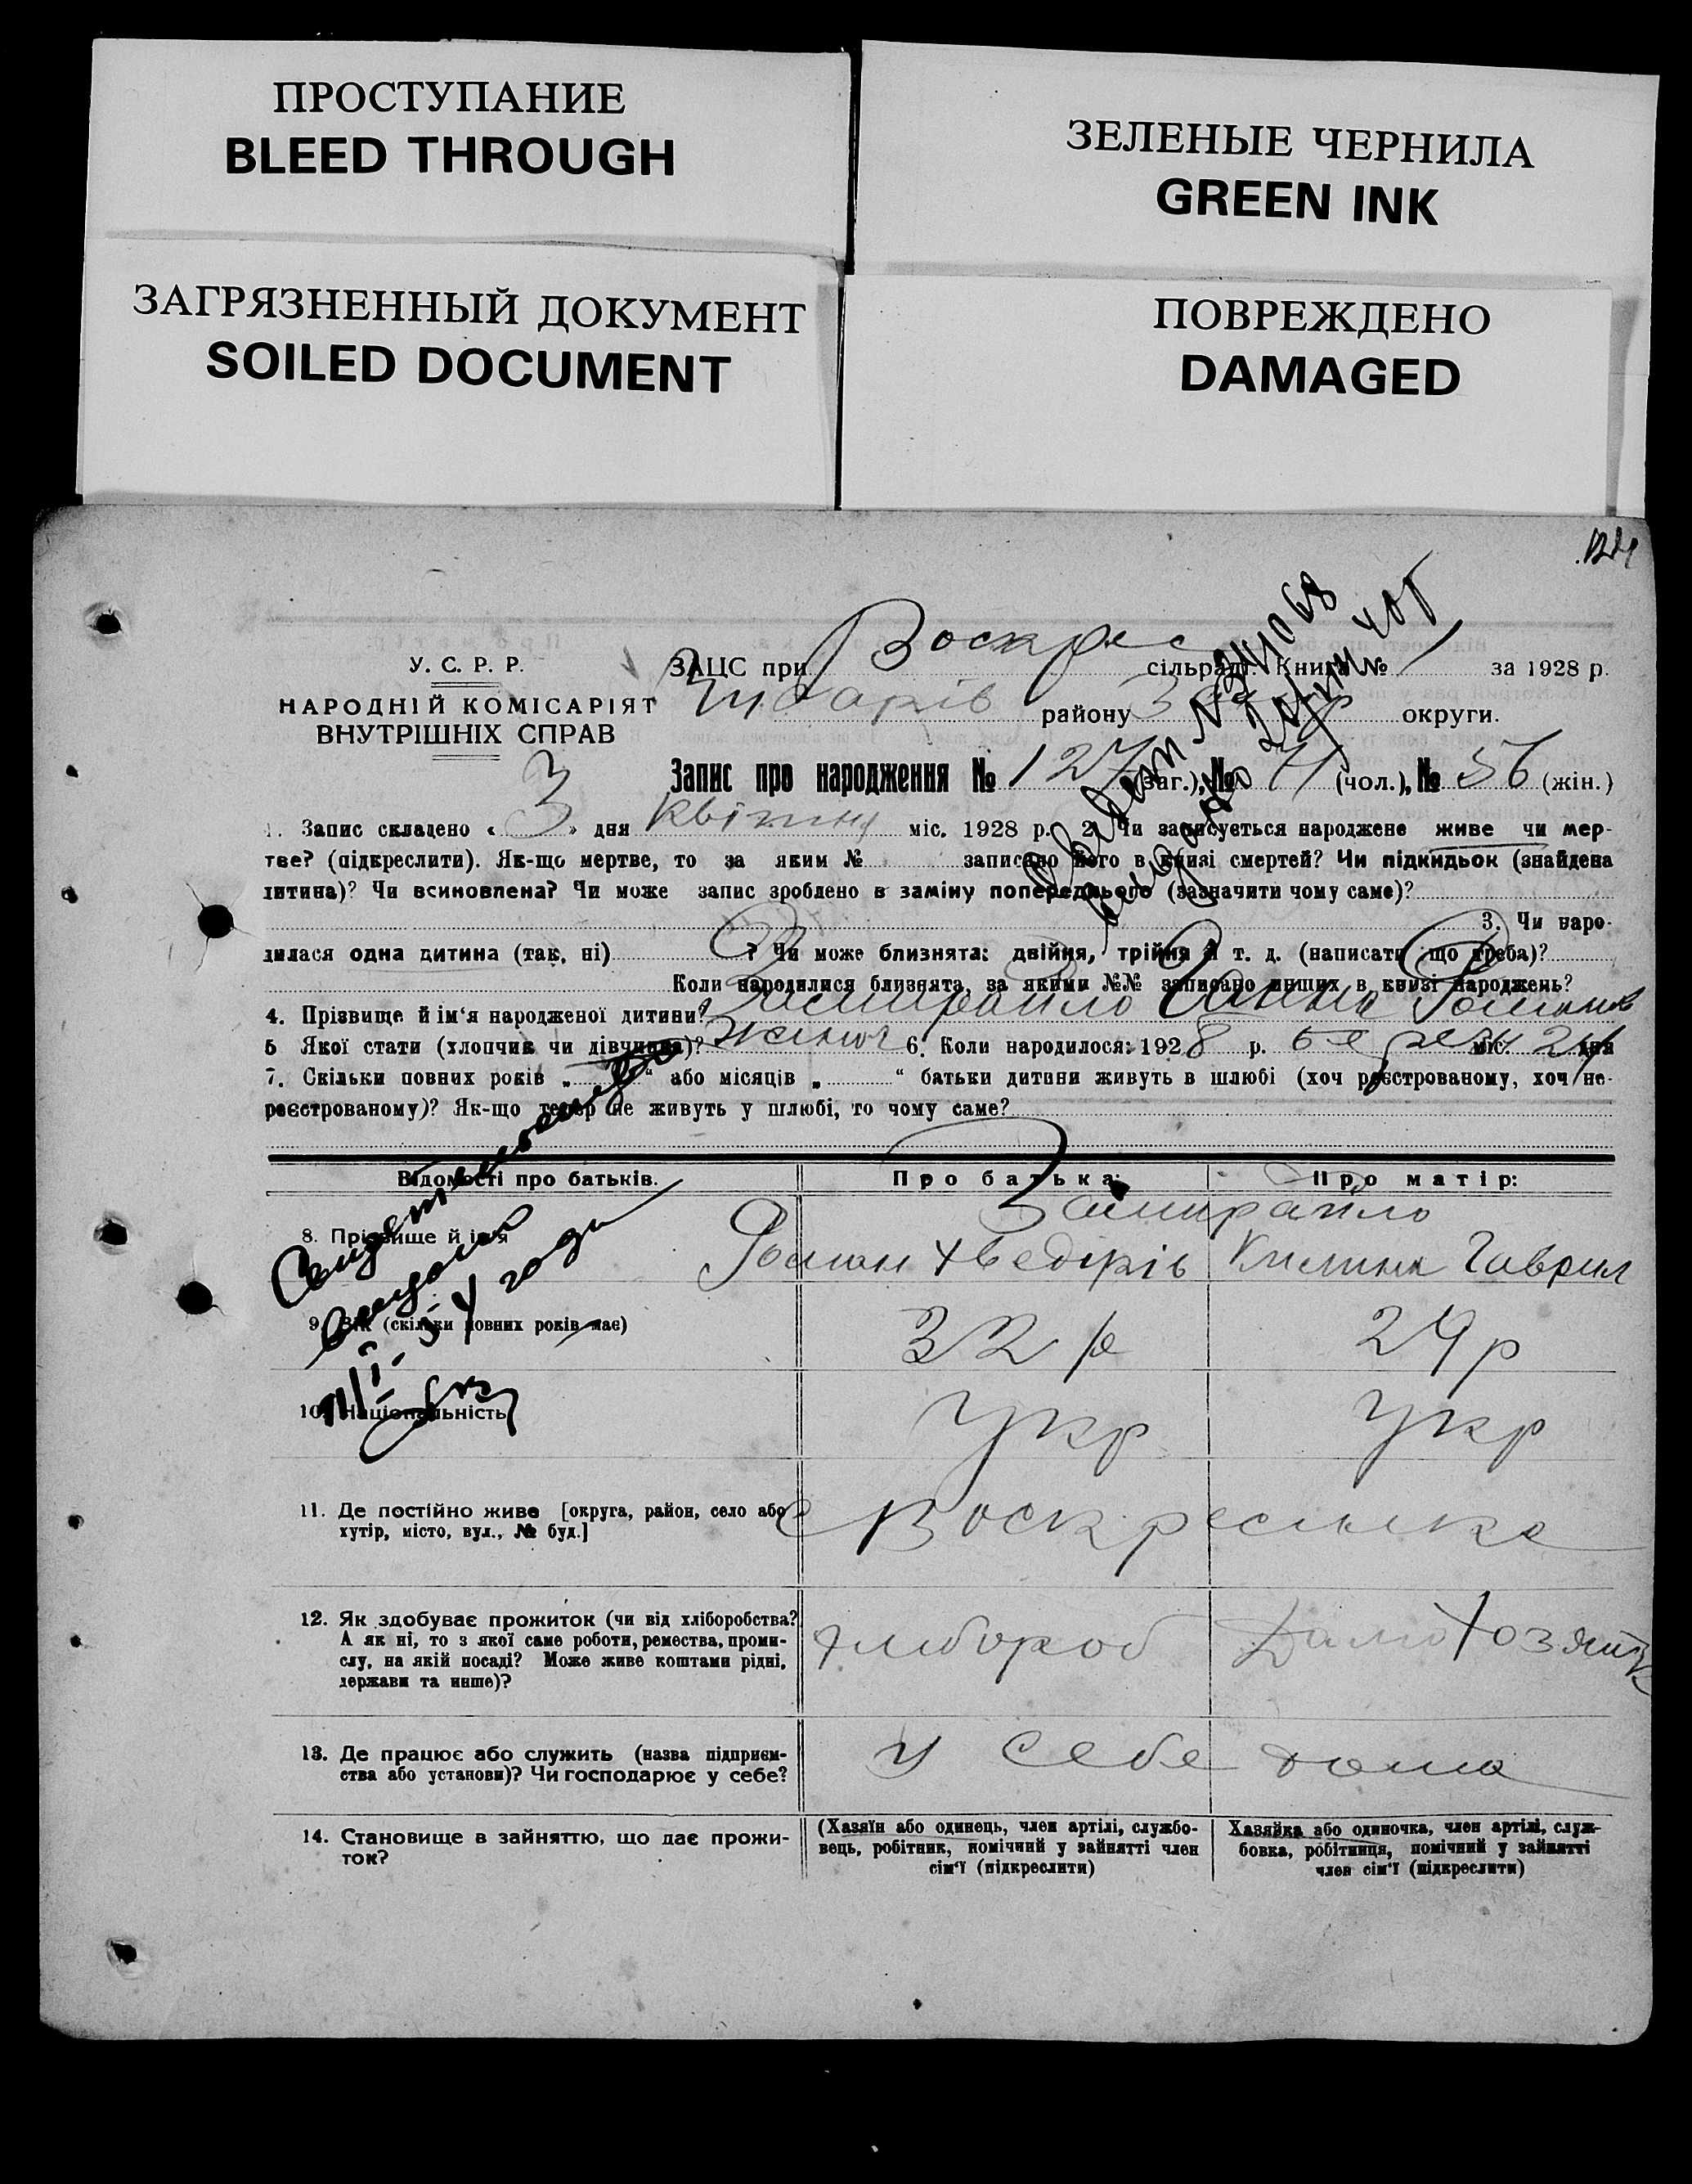 ПРОСТУПАНИЕ
BLEED THROUGH
ЗЕЛЕНЫЕ ЧЕРНИЛА
GREEN INK
ЗАГРЯЗНЕННЫЙ ДОКУМЕНТ
SOILED DOCUMENT
ПОВРЕЖДЕНО
DAMAGED
У. С. Р. Р.
НАРОДНІЙ КОМІСАРІЯТ
ВНУТРІШНІХ СПРАВ
ЗАЦС при Воскрес сільраді. Книга № 1 за 1928 р.
району округи.
Запис про народження № 127 (заг.), № 71 (чол.), № 56 (жін.)
1. Запис складено « 3 » дня квітня міс. 1928 р. 2. Чи записується народжене живе чи мер-
тве? (підкреслити). Як-що мертве, то за яким № записано його в книзі смертей? Чи підкидьок (знайдена
дитина)? Чи всиновлена? Чи може запис зроблено в заміну попереднього (зазначити чому саме)?
3. Чи наро-
дилася одна дитина (так, ні) ? Чи може близнята: двійня, трійня й т. д. (написати що треба)?
Коли народилися близнята, за якими №№ записано инших в книзі народжень?
4. Прізвище й ім'я народженої дитини? Роман
5 Якої стати (хлопчик чи дівчинка)? жіноч 6. Коли народилося: 1928 р. березня міс. 24 дня
7. Скільки повних років „ “ або місяців „ “ батьки дитини живуть в шлюбі (хоч реєстрованому, хоч не-
реєстрованому)? Як-що тепер не живуть у шлюбі, то чому саме?
Відомості про батьків. Про батька: Про матір:
8. Прізвище й ім'я
Роман Хведірів Килина Гаврил
9. Вік (скільки повних років має) 32 р 29 р
10. Національність Укр Укр
11. Де постійно живе [округа, район, село або
хутір, місто, вул., № буд.]
с Воскресенка
12. Як здобуває прожиток (чи від хліборобства?
А як ні, то з якої саме роботи, ремества, проми-
слу, на якій посаді? Може живе коштами рідні,
держави та инше)?
хлібороб
13. Де працює або служить (назва підприєм-
ства або установи)? Чи господарює у себе?
у себе дома
14. Становище в зайняттю, що дає прожи-
ток?
(Хазяїн або одинець, член артілі, службо-
вець, робітник, помічний у зайнятті член
сім'ї (підкреслити)
Хазяйка або одиночка, член артілі, служ-
бовка, робітниця, помічний у зайнятті
член сім'ї (підкреслити)